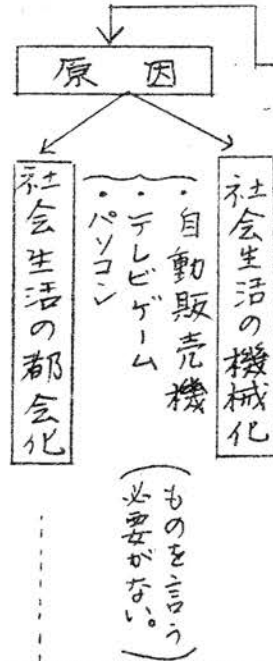 原因
社会生活の機械化
・自動販売機
・テレビゲーム
・パソコン
(ものを言う
必要がない。)
社会生活の都会化